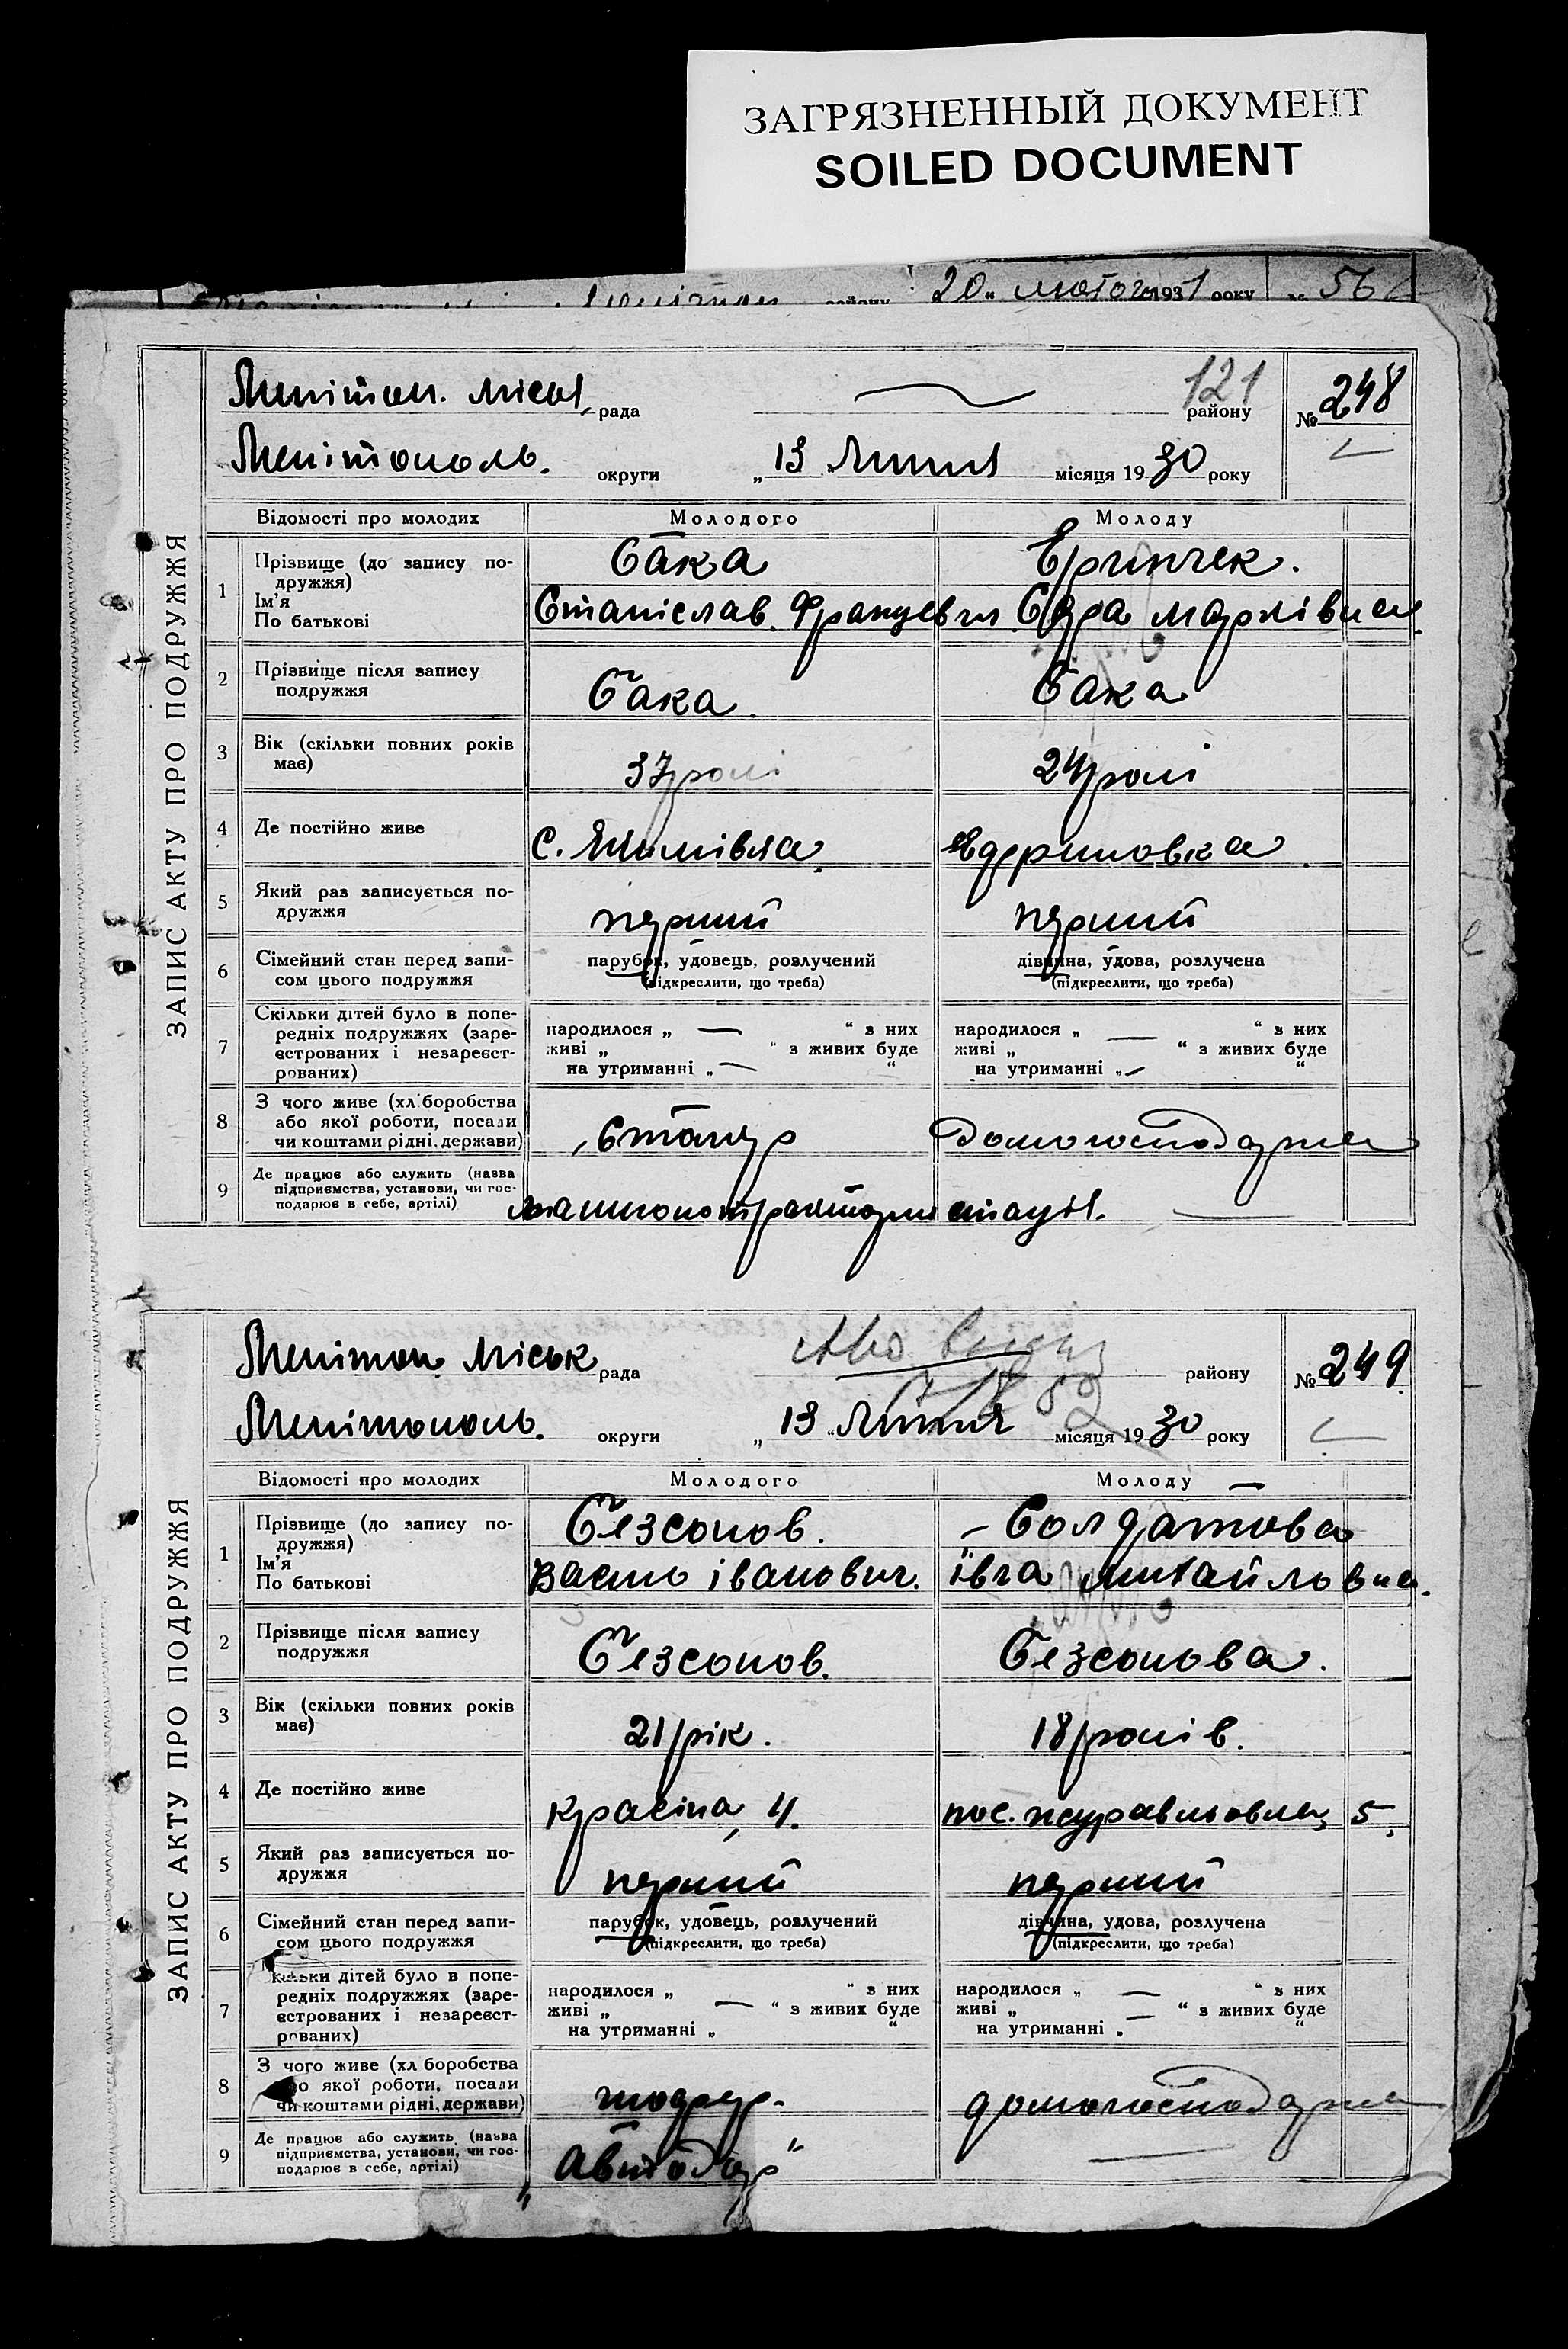 ЗАГРЯЗНЕННЫЙ ДОКУМЕНТ
SOILED DOCUMENT
району 20 " лютого 1931 року № 56
ЗАПИС АКТУ ПРО ПОДРУЖЖЯ
Мелітоп. міськ. рада району 121 № 248
Мелітополь. округи „ 13 " Липня місяця 1930 року
Відомості про молодих Молодого Молоду
1 Прізвище (до запису по-
дружжя) Бака
Ім'я
По батькові Станіслав Францевич
2 Прізвище після запису
подружжя Бака. Бака
3 Вік (скільки повних років
має) 37 років 24 роки
4 Де постійно живе с.
5 Який раз записується по-
дружжя перший перший
6 Сімейний стан перед запи-
сом цього подружжя парубок, удовець, розлучений дівчина, удова, розлучена
(підкреслити, що треба) (підкреслити, що треба)
7 Скільки дітей було в попе-
редніх подружжях (заре-
єстрованих і незареєст-
рованих)
народилося „ — “ з них народилося „ — “ з них
живі „ “ з живих буде живі „ “ з живих буде
на утриманні „ — “ на утриманні „ — “
8 З чого живе (хліборобства
або якої роботи, посади
чи коштами рідні, держави) Домогосподарка
9 Де працює або служить (назва
підприємства, установи, чи гос-
подарює в себе, артілі) машинотракторн станція. —
ЗАПИС АКТУ ПРО ПОДРУЖЖЯ
Мелітоп. міськ рада району № 249
Мелітополь. округи „ 13 " Липня місяця 1930 року
Відомості про молодих Молодого Молоду
1 Прізвище (до запису по-
дружжя) Безсонов. Солдатова
Ім'я
По батькові Василь іванович. івга михайловна.
2 Прізвище після запису
подружжя Безсонов. Безсонова.
3 Вік (скільки повних років
має) 21 рік. 18 років.
4 Де постійно живе Красіна, 4. пос. журавльовка, 5.
5 Який раз записується по-
дружжя перший перший
6 Сімейний стан перед запи-
сом цього подружжя парубок, удовець, розлучений дівчина, удова, розлучена
(підкреслити, що треба) (підкреслити, що треба)
7 Скільки дітей було в попе-
редніх подружжях (заре-
єстрованих і незареєст-
рованих)
народилося „ “ з них народилося „ — “ з них
живі „ — “ з живих буде живі „ — “ з живих буде
на утриманні „ “ на утриманні „ “
8 З чого живе (хліборобства
або якої роботи, посади
чи коштами рідні, держави) шофер. домогосподарка
9 Де працює або служить (назва
підприємства, установи, чи гос-
подарює в себе, артілі) „Автодор" —